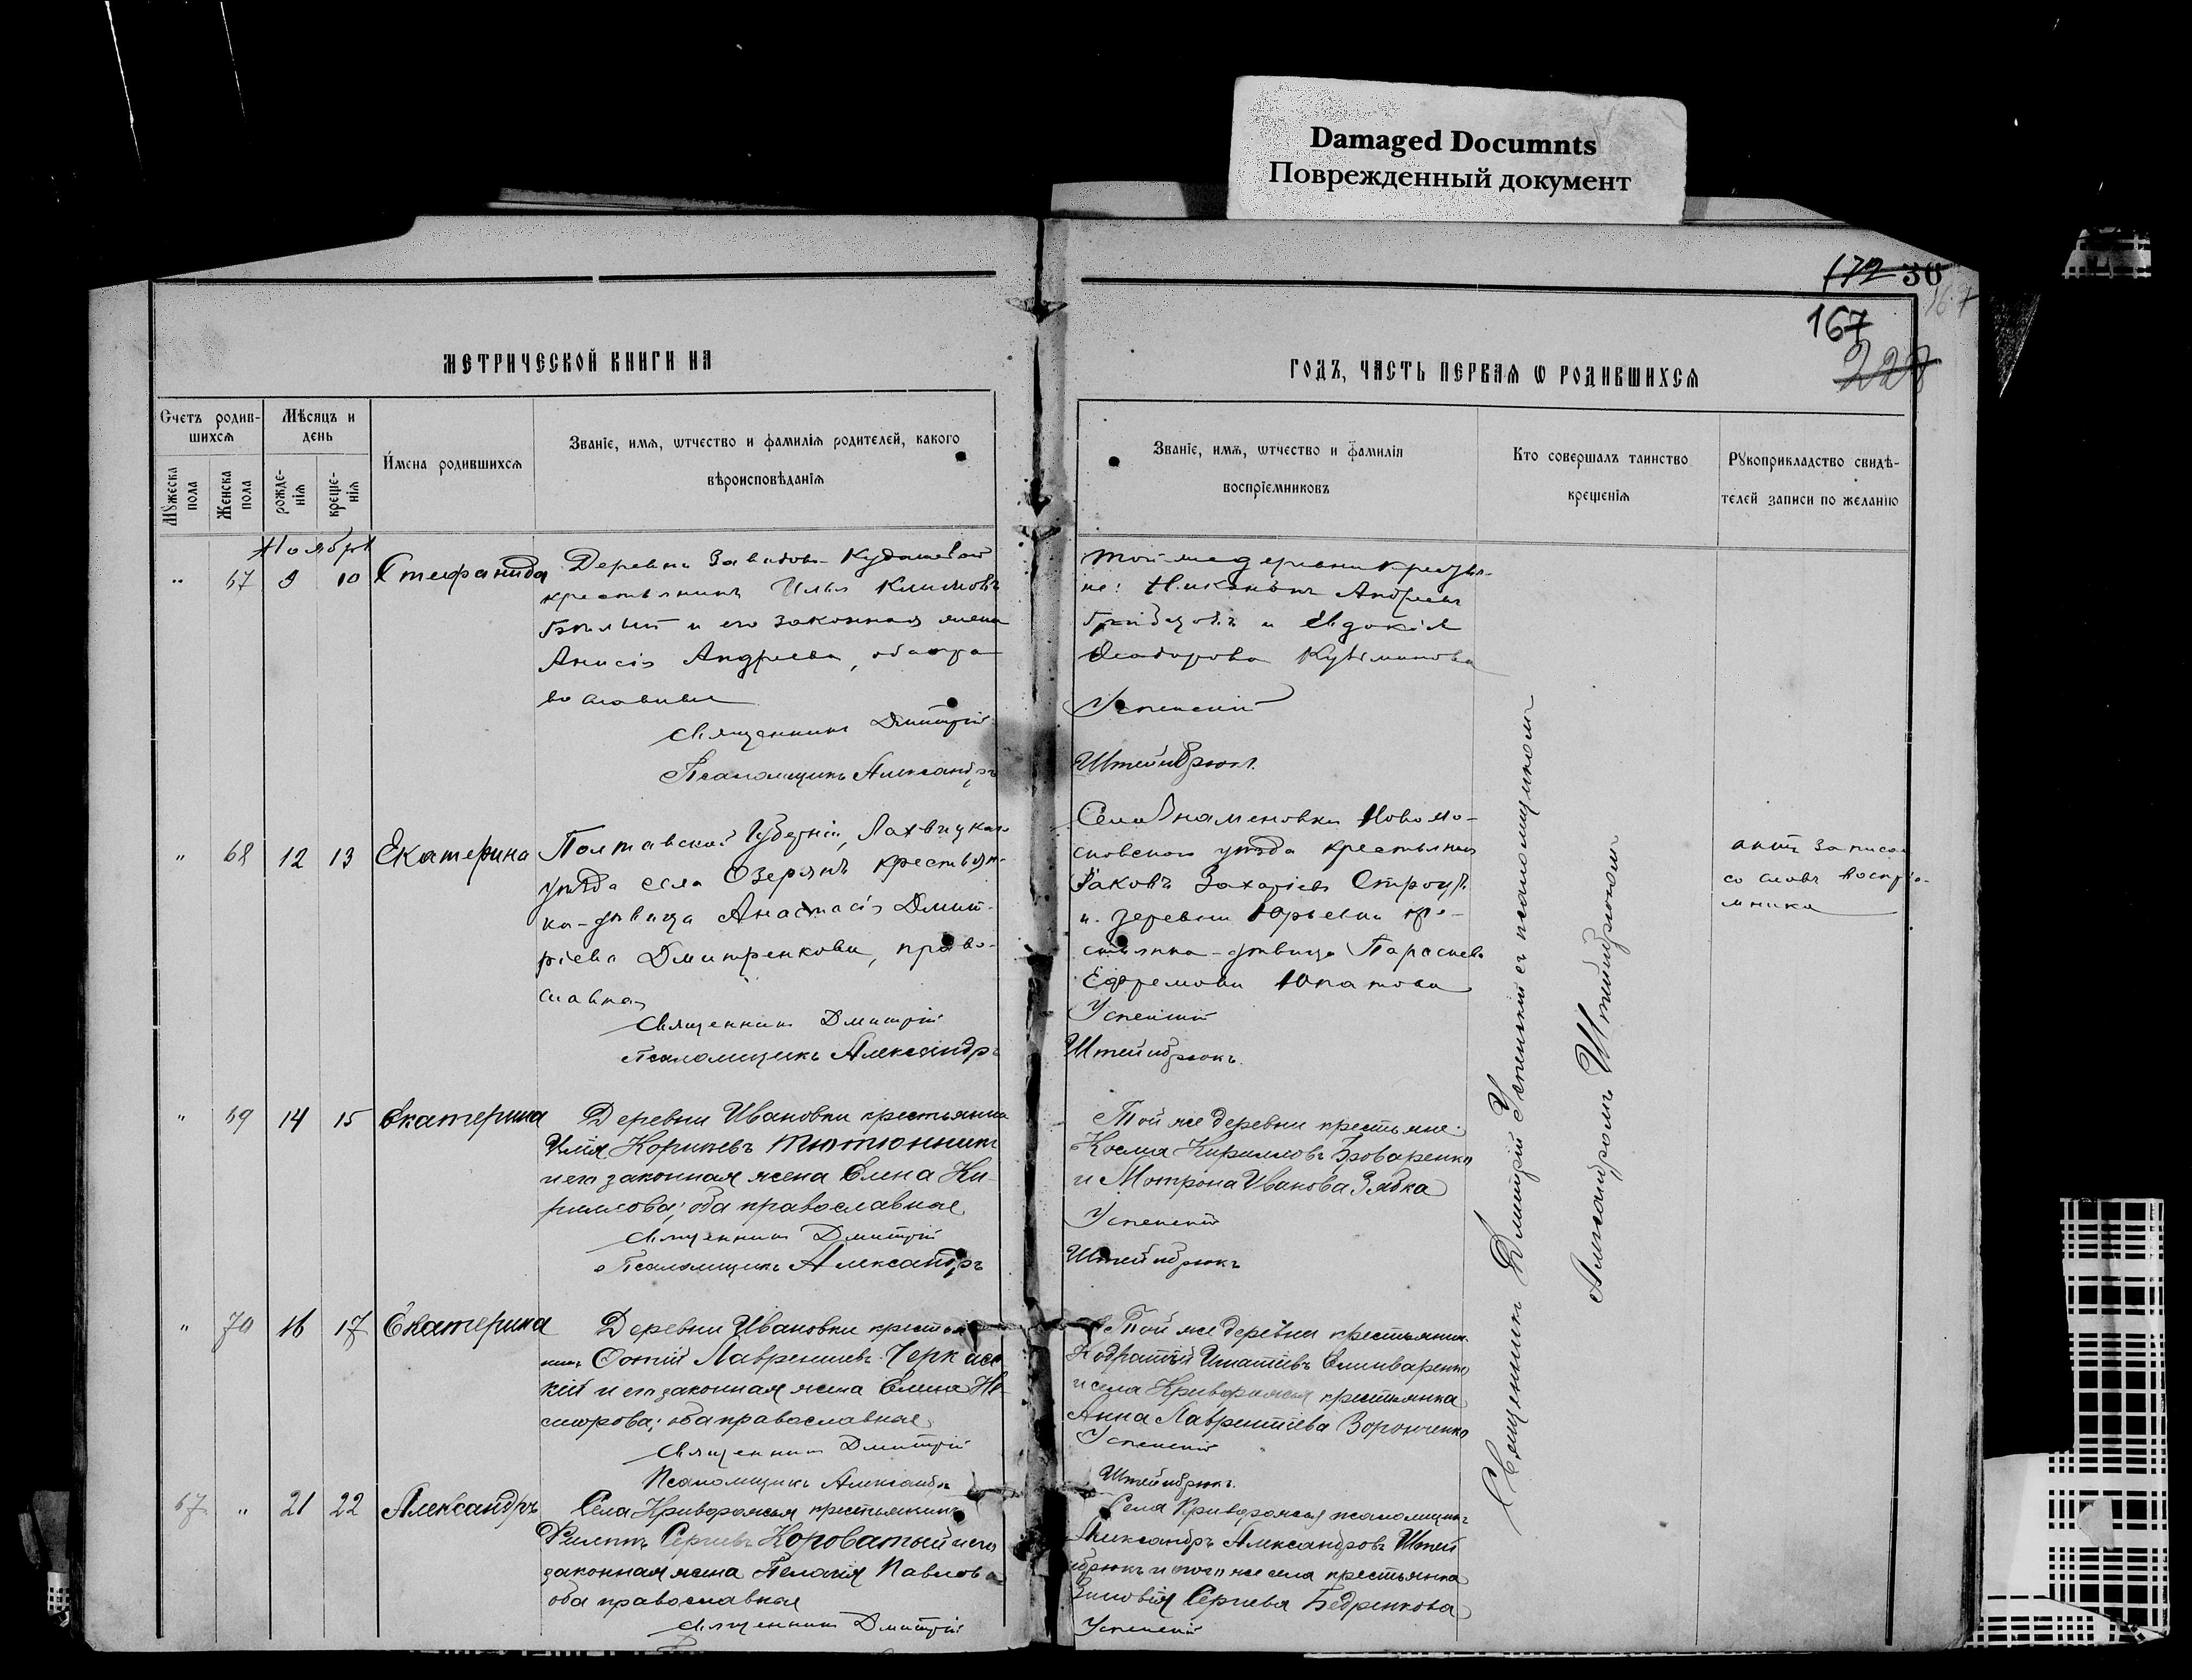 Damaged Documnts
Поврежденный документ
172 30
167
167
228
МЕТРИЧЕСКОЙ КНИГИ НА
ГОДЪ, ЧАСТЬ ПЕРВАЯ Ѡ РОДИВШИХСЯ
Счетъ родив-
шихся
Мѣсяцъ и
день
Мужеска
пола
Женска
пола
рожде-
нія
креще-
нія
Имена родившихся
Званіе, имя, ѡтчество и фамилія родителей, какого
вѣроисповѣданія
Званіе, имя, ѡтчество и фамилія
воспріемниковъ
Кто совершалъ таинство
крещенія
Рукоприкладство свидѣ-
телей записи по желанію
Ноября
" 67 9 10 Стефанида
Деревни
крестьянинъ Илья Климовъ
и его законная жена
Анисія Андреева, оба пра
вославные
Священникъ Дмитрій
Псаломщикъ Александръ
Той-же деревни крестья-
не: Андреевъ
и Евдокія
Ѳеодорова
Успенскій
Штейнбрюкъ
" 68 12 13 Екатерина
Полтавской Губерніи, Лохвицкаго
уѣзда села Озерянъ крестьян-
ка-дѣвица Анастасія Дмит-
ріева Дмитренкова, право-
славная
Священникъ Дмитрій
Псаломщикъ Александръ
Села Знаменовки Новомо-
сковскаго уѣзда крестьянинъ
Іаковъ Захаріевъ
и деревни Юрьевки кре-
стьянка-дѣвица Параскева
Ефремова
Успенскій
Штейнбрюкъ.
актъ записанъ
со словъ воспріе-
мника
" 69 14 15 Екатерина
Деревни Ивановки крестьянинъ
Илія Корніевъ Тютюнникъ
и его законная жена Елена Ки-
риллова; оба православные
Священникъ Дмитрій
Псаломщикъ Александръ
Той же деревни крестьяне:
Косма Кирилловъ Броваренко
и Мотрона Иванова Зябка
Успенскій
Штейнбрюкъ
" 70 16 17 Екатерина
Деревни Ивановки крестья
нинъ Фотій Лаврентіевъ Черкас
кій и его законная жена Елена Ни-
сифорова; оба православные
Священникъ Дмитрій
Псаломщикъ Александръ
Той же деревни крестьянинъ
Кодратій Игнатіевъ
и села Криворожья крестьянка
Анна Лаврентіева Воронченко
Успенскій
Штейнбрюкъ.
67 " 21 22 Александръ
Села Криворожья крестьянинъ
Филиппъ Сергіевъ Короватый и его
законная жена Пелагія Павлова
оба православные
Священникъ Дмитрій
Села Криворожья псаломщикъ
Александръ Александровъ Штей
нбрюкъ и того же села крестьянка
Зиновія Сергіева Бедренкова
Успенскій
Священникъ Дмитрій Успенскій съ псаломщикомъ
Александромъ Штейнбрюкомъ